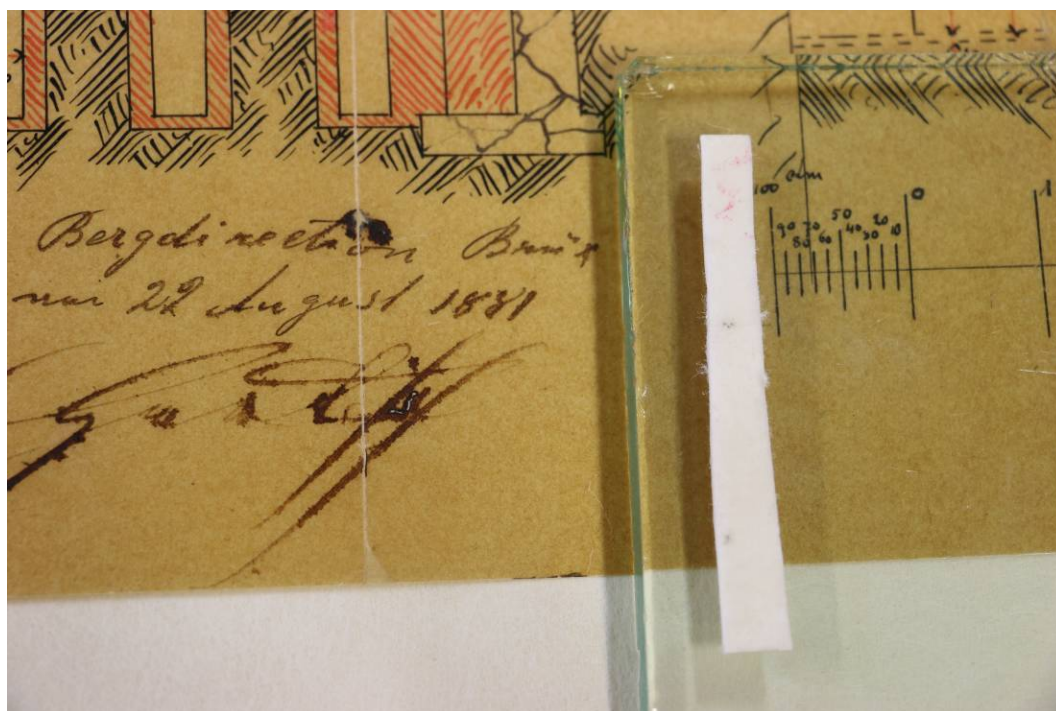 Bergdirection Brüx
22 August 1881
100 0 1
90 80 70 60 50 40 30 20 10